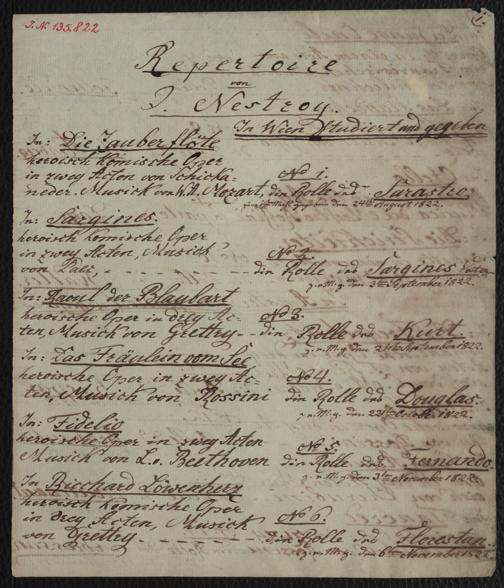 J.N. 135.822
1.
Repertoire
von
J. Nestroy.
In Wien Studiert und gegeben
In: Die Zauberflöte
heroisch komische Oper
in zwey Acten von Schicka-
neder. Musick von W. A. Mozart,
No 1.
die Rolle des Sarastro.
z. e. Mal gegeben den 24ten August 1822.
In: Sargines.
heroisch komische Oper
in zwey Acten, Musick
von Paer, - - - - - -
No 2.
die Rolle des Sargines Vater
z. e. M. g. den 3ten September 1822.
In: Raoul der Blaubart
heroische Oper in drey Ac-
ten, Musick von Grettry. - -
No 3.
die Rolle des Kurt.
z. e. M. g. den September 1822.
In: Das Fräulein vom See
heroische Oper in zwey Ac-
ten, Musick von Rossini
No 4.
die Rolle des Douglas.
z. e. M. g. den October 1822.
In: Fidelio
heroische Oper in zwey Acten
Musick von L. v. Beethoven
No 5.
die Rolle des Fernando
z. e. M. g. den 3ten November 1822.
In Richard Löwenherz
heroisch komische Oper
in drey Acten, Musick
von Grettry. - - - - - -
No 6.
die Rolle des Florestan
z. e. M. g. den 6ten November 1822